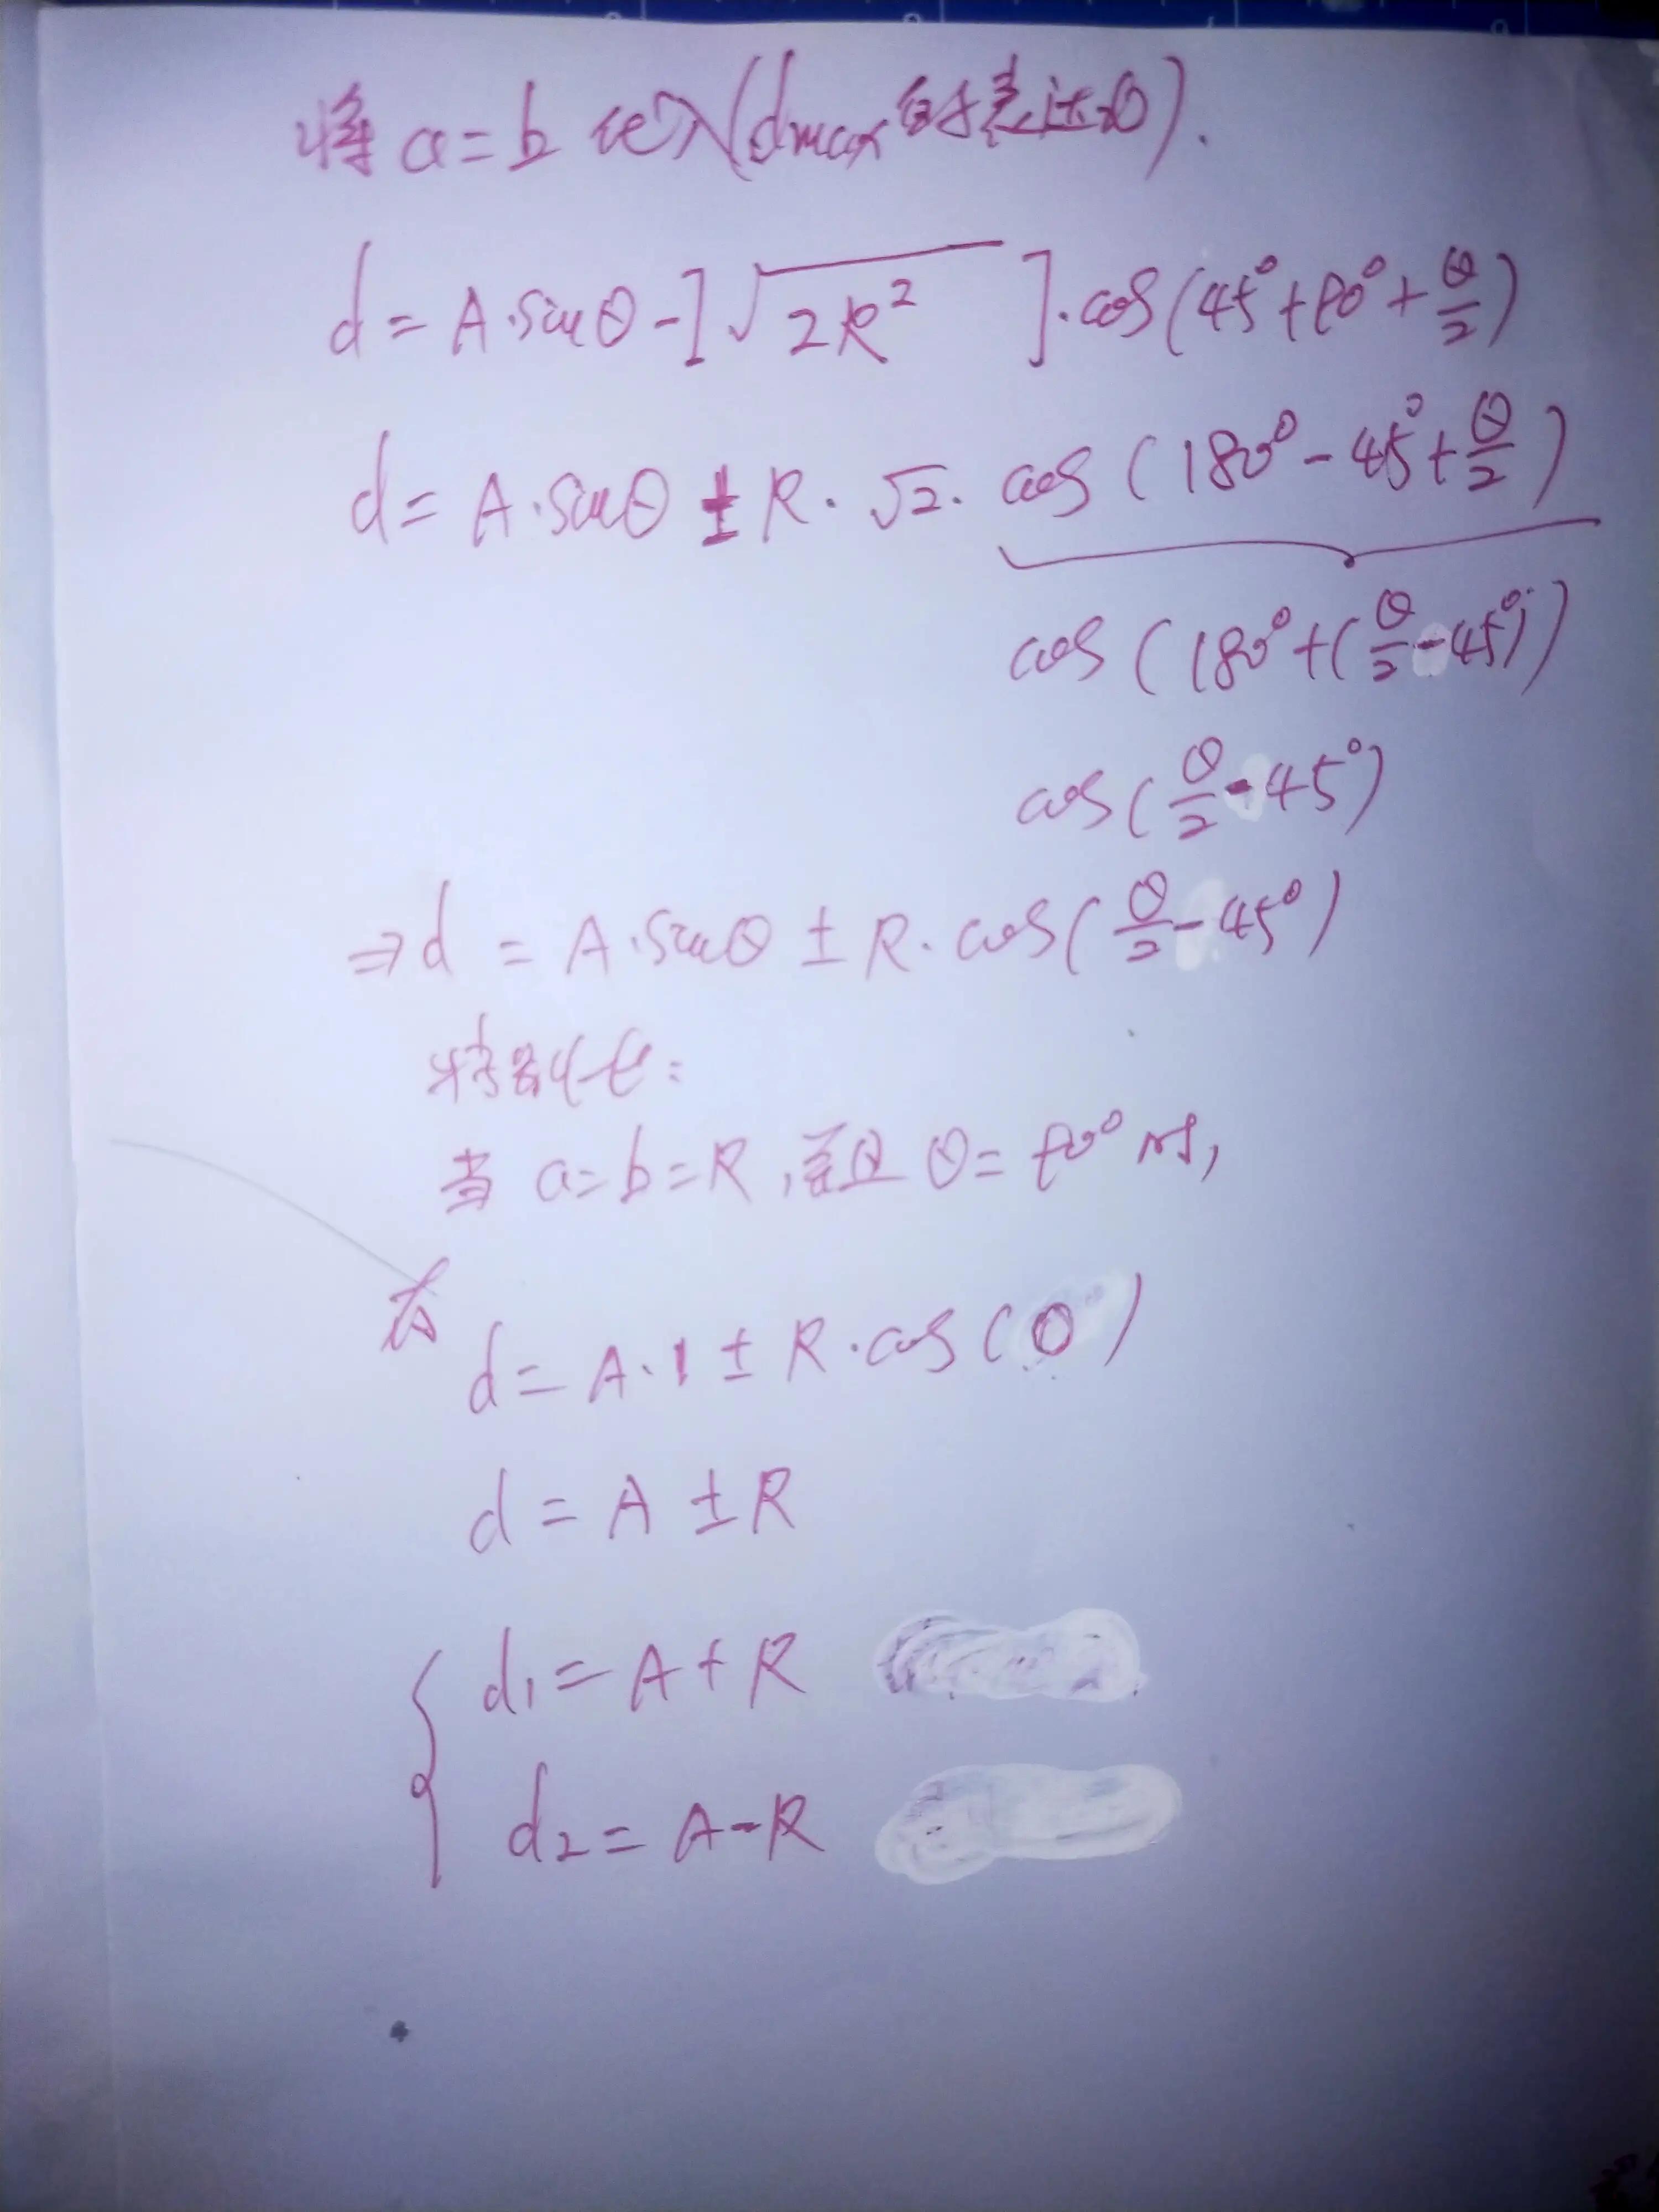 将 a=b 代入(dmax的表达式).
d = A·sinθ - [√2R² ]·cos(45°+90°+θ/2)
d = A·sinθ ± R·√2·cos(180°-45°+θ/2)
cos(180°+(θ/2-45°))
cos(θ/2-45°)
⇒d = A·sinθ ± R·cos(θ/2-45°)
特别地:
当 a=b=R,并且 θ=90°时,
有
d = A·1 ± R·cos(0)
d = A ± R
d1 = A+R
d2 = A-R